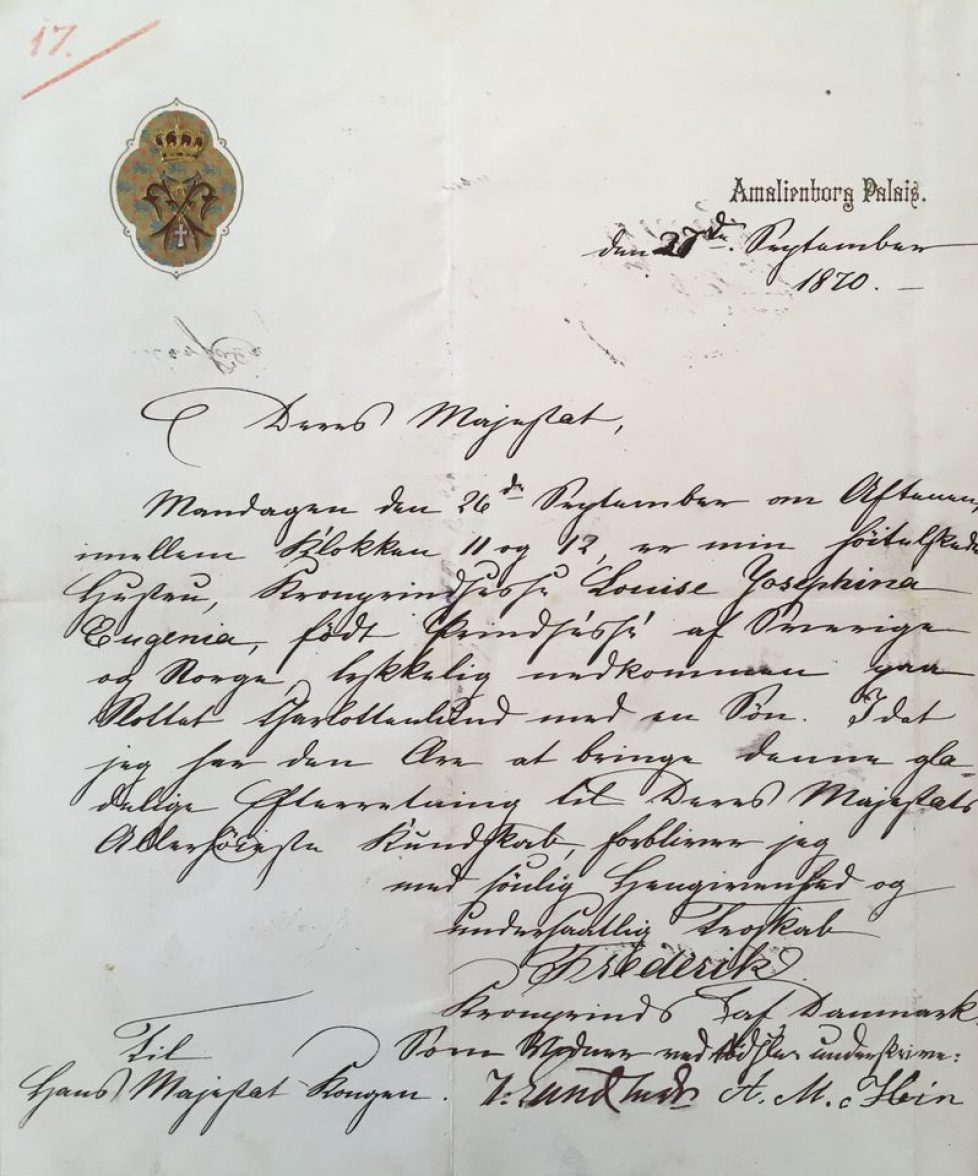 17.
Amalienborg Palais.
den 27de September
1870. —
Deres Majestæt,
Mandagen den 26de September om Aftenen,
imellem Klokken 11 og 12, er min höitelskede
Hustru, Kronprindsesse Louise Josephina
Eugenia, födt Prindsesse af Sverige
og Norge, lykkelig nedkommen paa
Slottet Charlottenlund med en Sön. Idet
jeg har den Ære at bringe denne glæ-
delige Efterretning til Deres Majestæts
Allerhöieste Kundskab, forbliver jeg
med sönlig Hengivenhed og
undersaatlig Troskab
Frederik
Kronprinds af Danmark
Til
Som Vidner ved underskrive:
Hans Majestæt Kongen.
A. M. Hein